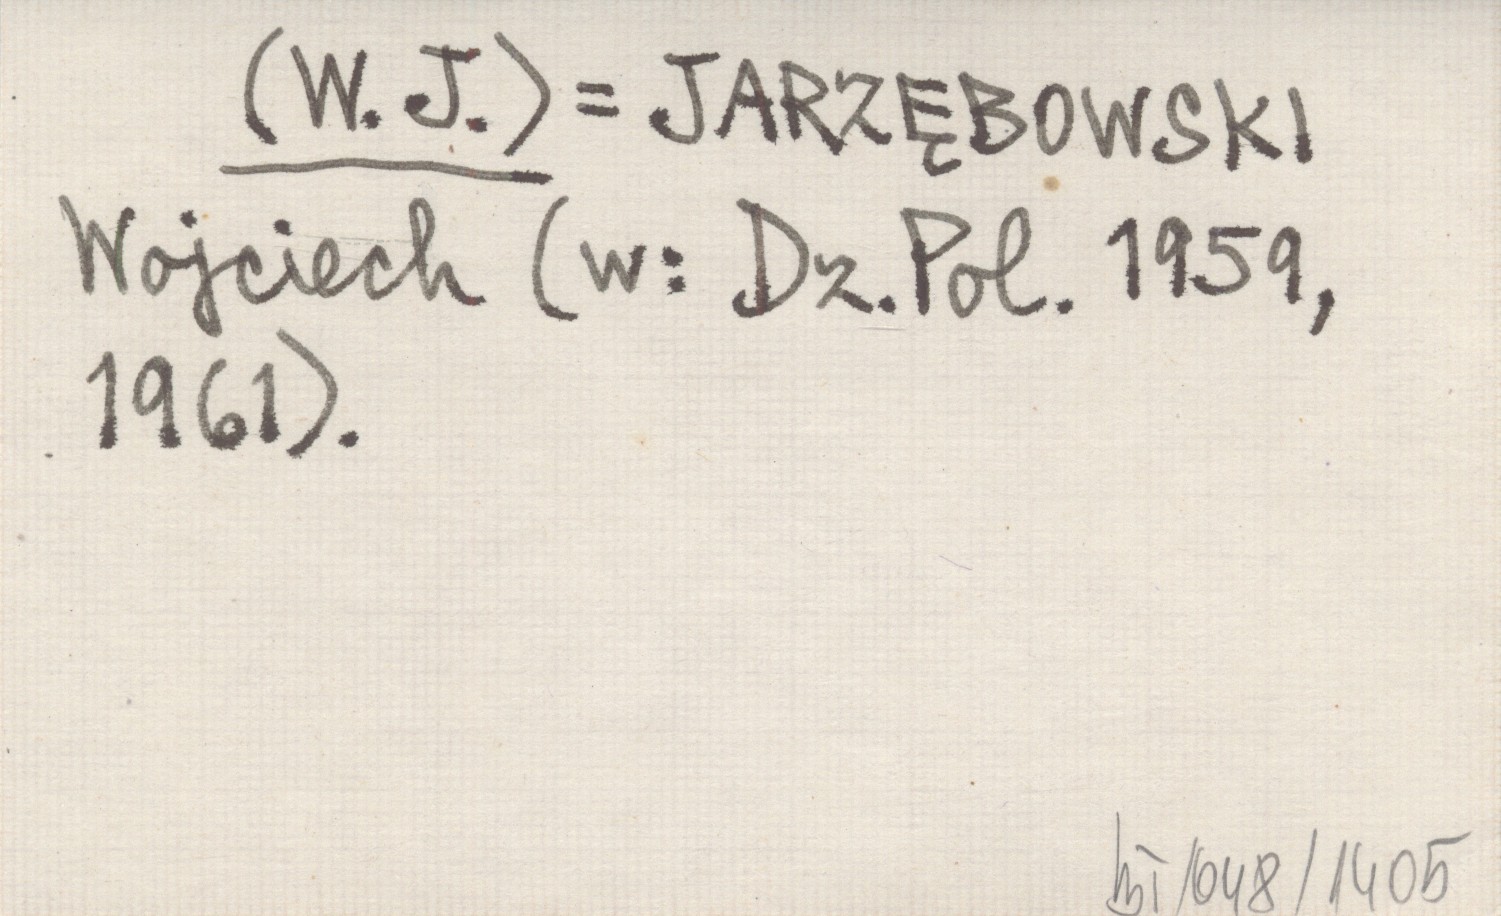 (W.J.) = JARZĘBOWSKI
Wojciech (w: Dz.Pol. 1959,
1961).
/648/1405